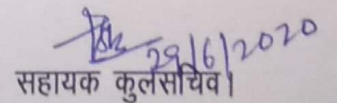 29/6/2020
सहायक कुलसचिव।